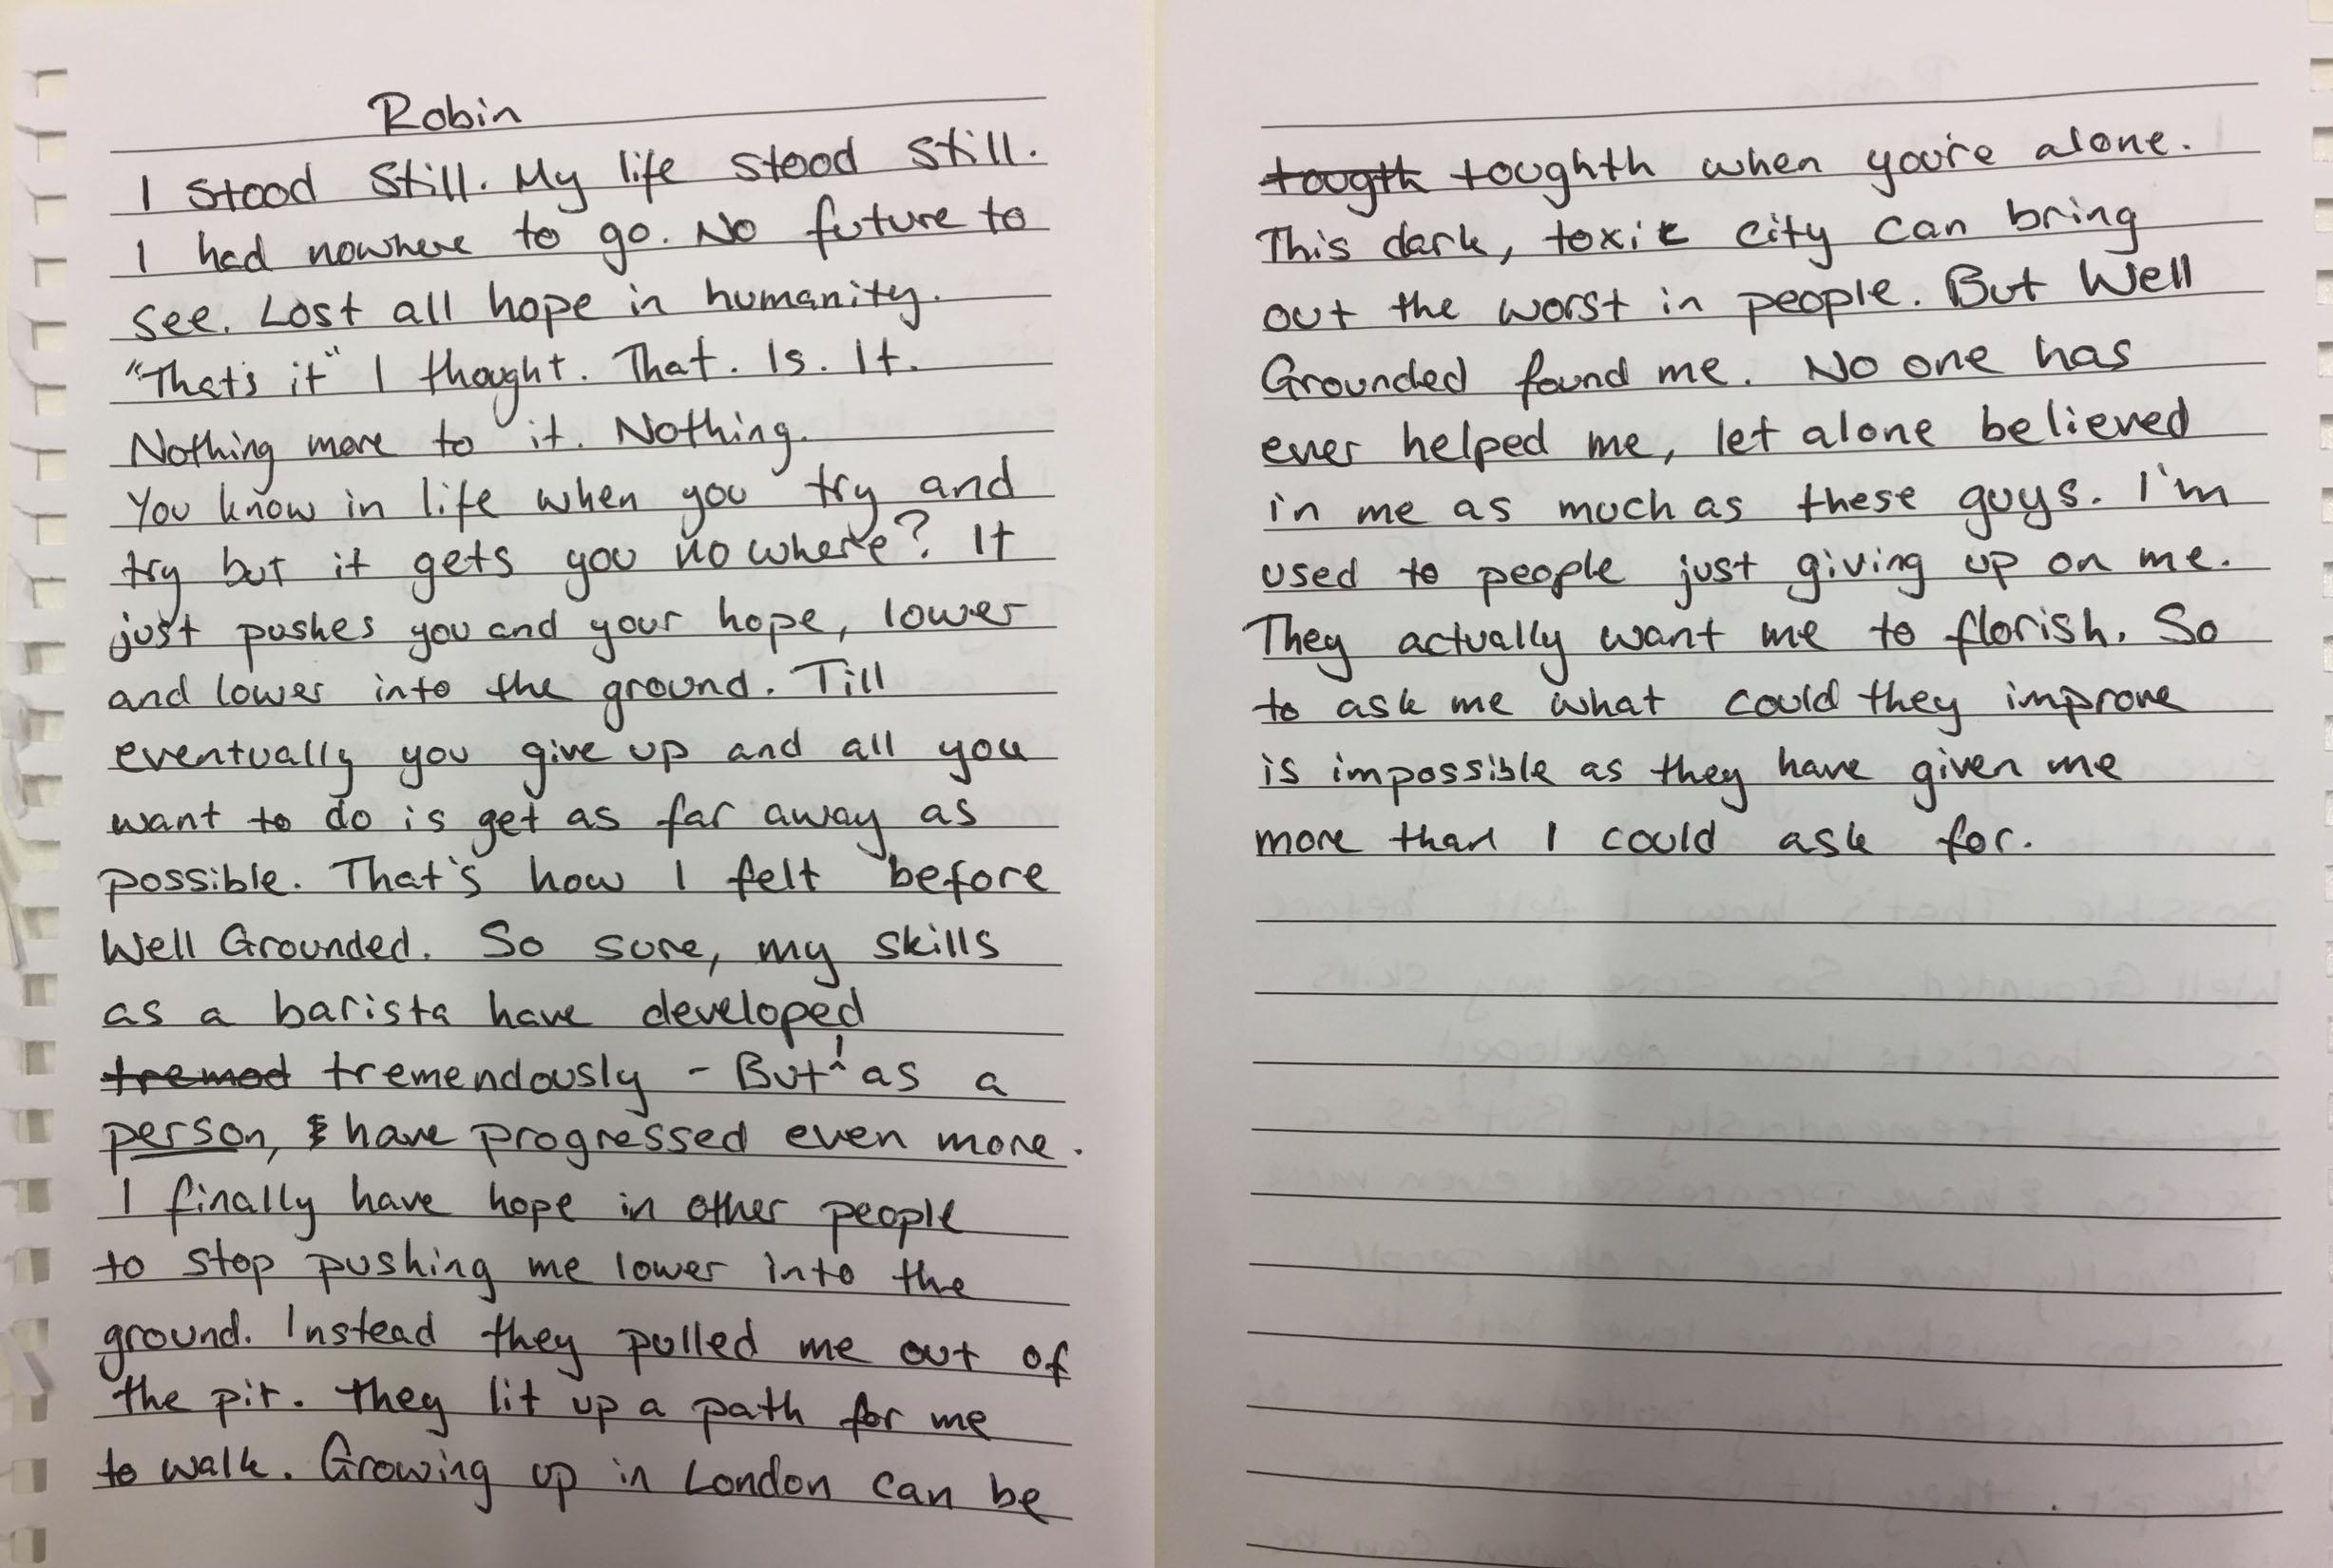 Robin
I stood still. My life stood still.
I had nowhere to go. No future to
see. Lost all hope in humanity.
"That's it" I thought. That. Is. It.
Nothing more to it. Nothing.
You know in life when you try and
try but it gets you nowhere? It
just pushes you and your hope, lower
and lower into the ground. Till
eventually you give up and all you
want to do is get as far away as
possible. That's how I felt before
Well Grounded. So sure, my skills
as a barista have developed
tremod tremendously - But I as a
person, & have progressed even more.
I finally have hope in other people
to stop pushing me lower into the
ground. Instead they pulled me out of
the pit. They lit up a path for me
to walk. Growing up in London can be
tougth toughth when you're alone.
This dark, toxic city can bring
out the worst in people. But Well
Grounded found me. No one has
ever helped me, let alone believed
in me as much as these guys. I'm
used to people just giving up on me.
They actually want me to florish. So
to ask me what could they improve
is impossible as they have given me
more than I could ask for.